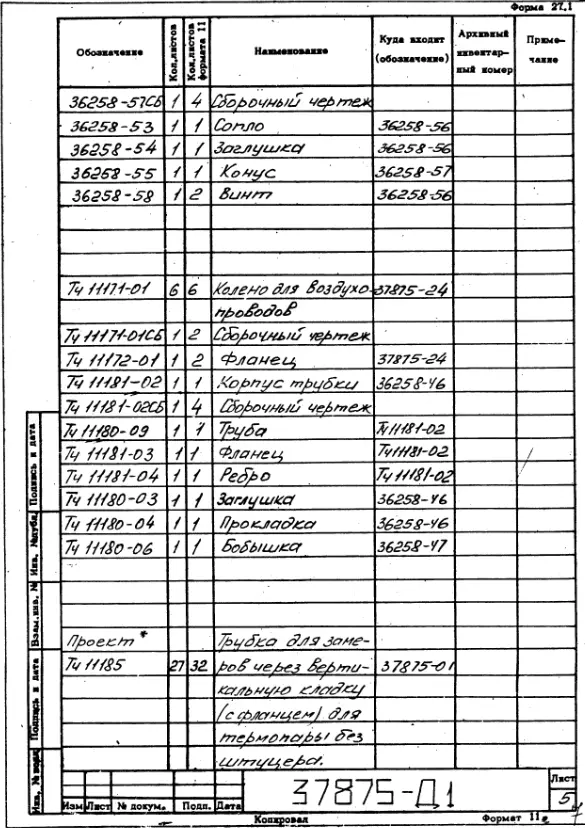 Форма 27.1
Обозначение Кол.листов Кол.листов формата 11 Наименование Куда входит (обозначение) Архивный инвентар-ный номер Приме-чание
36258-57СБ 1 4 Сборочный чертеж
36258-53 1 1 Сопло 36258-56
36258-54 1 1 Заглушка 36258-56
36258-55 1 1 Конус 36258-57
36258-58 1 2 Винт 36258-56
Тч 11171-01 6 6 Колено для воздухо- 37875-24
проводов
Тч 11171-01СБ 1 2 Сборочный чертеж
Тч 11172-01 1 2 Фланец 37875-24
Тч 11181-02 1 1 Корпус трубки 36258-46
Тч 11181-02СБ 1 4 Сборочный чертеж
Тч 11180-09 1 1 Труба Тч11181-02
Тч 11181-03 1 1 Фланец Тч11181-02
Тч 11181-04 1 1 Ребро Тч11181-02
Тч 11180-03 1 1 Заглушка 36258-46
Тч 11180-04 1 1 Прокладка 36258-46
Тч 11180-06 1 1 Бобышка 36258-47
Проект* Трубка для заме-
Тч 11185 27 32 ров через верти- 37875-01
кальную кладку
(с фланцем) для
термопары без
штуцера.
Подпись и дата
Инв. №дубл.
Взам.инв. №
Подпись и дата
Инв. № подл
Изм Лист № докум. Подп. Дата
37875-Д1
Лист
5
Копировал Формат 11